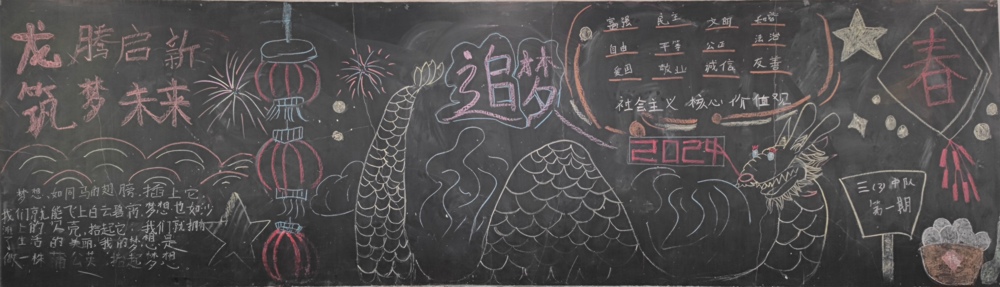 龙腾启新
筑梦未来
梦想,如同鸟的翅膀,插上它,
我们就能飞上白云碧霄,梦想也如沙
上的贝壳,拾起它,我们就拥
了生活的美丽,我的梦想是
做一株蒲公英
梦想
追梦
富强 民主 文明 和谐
自由 平等 公正 法治
爱国 敬业 诚信 友善
社会主义核心价值观
2024
春
三(3)中队
第一期